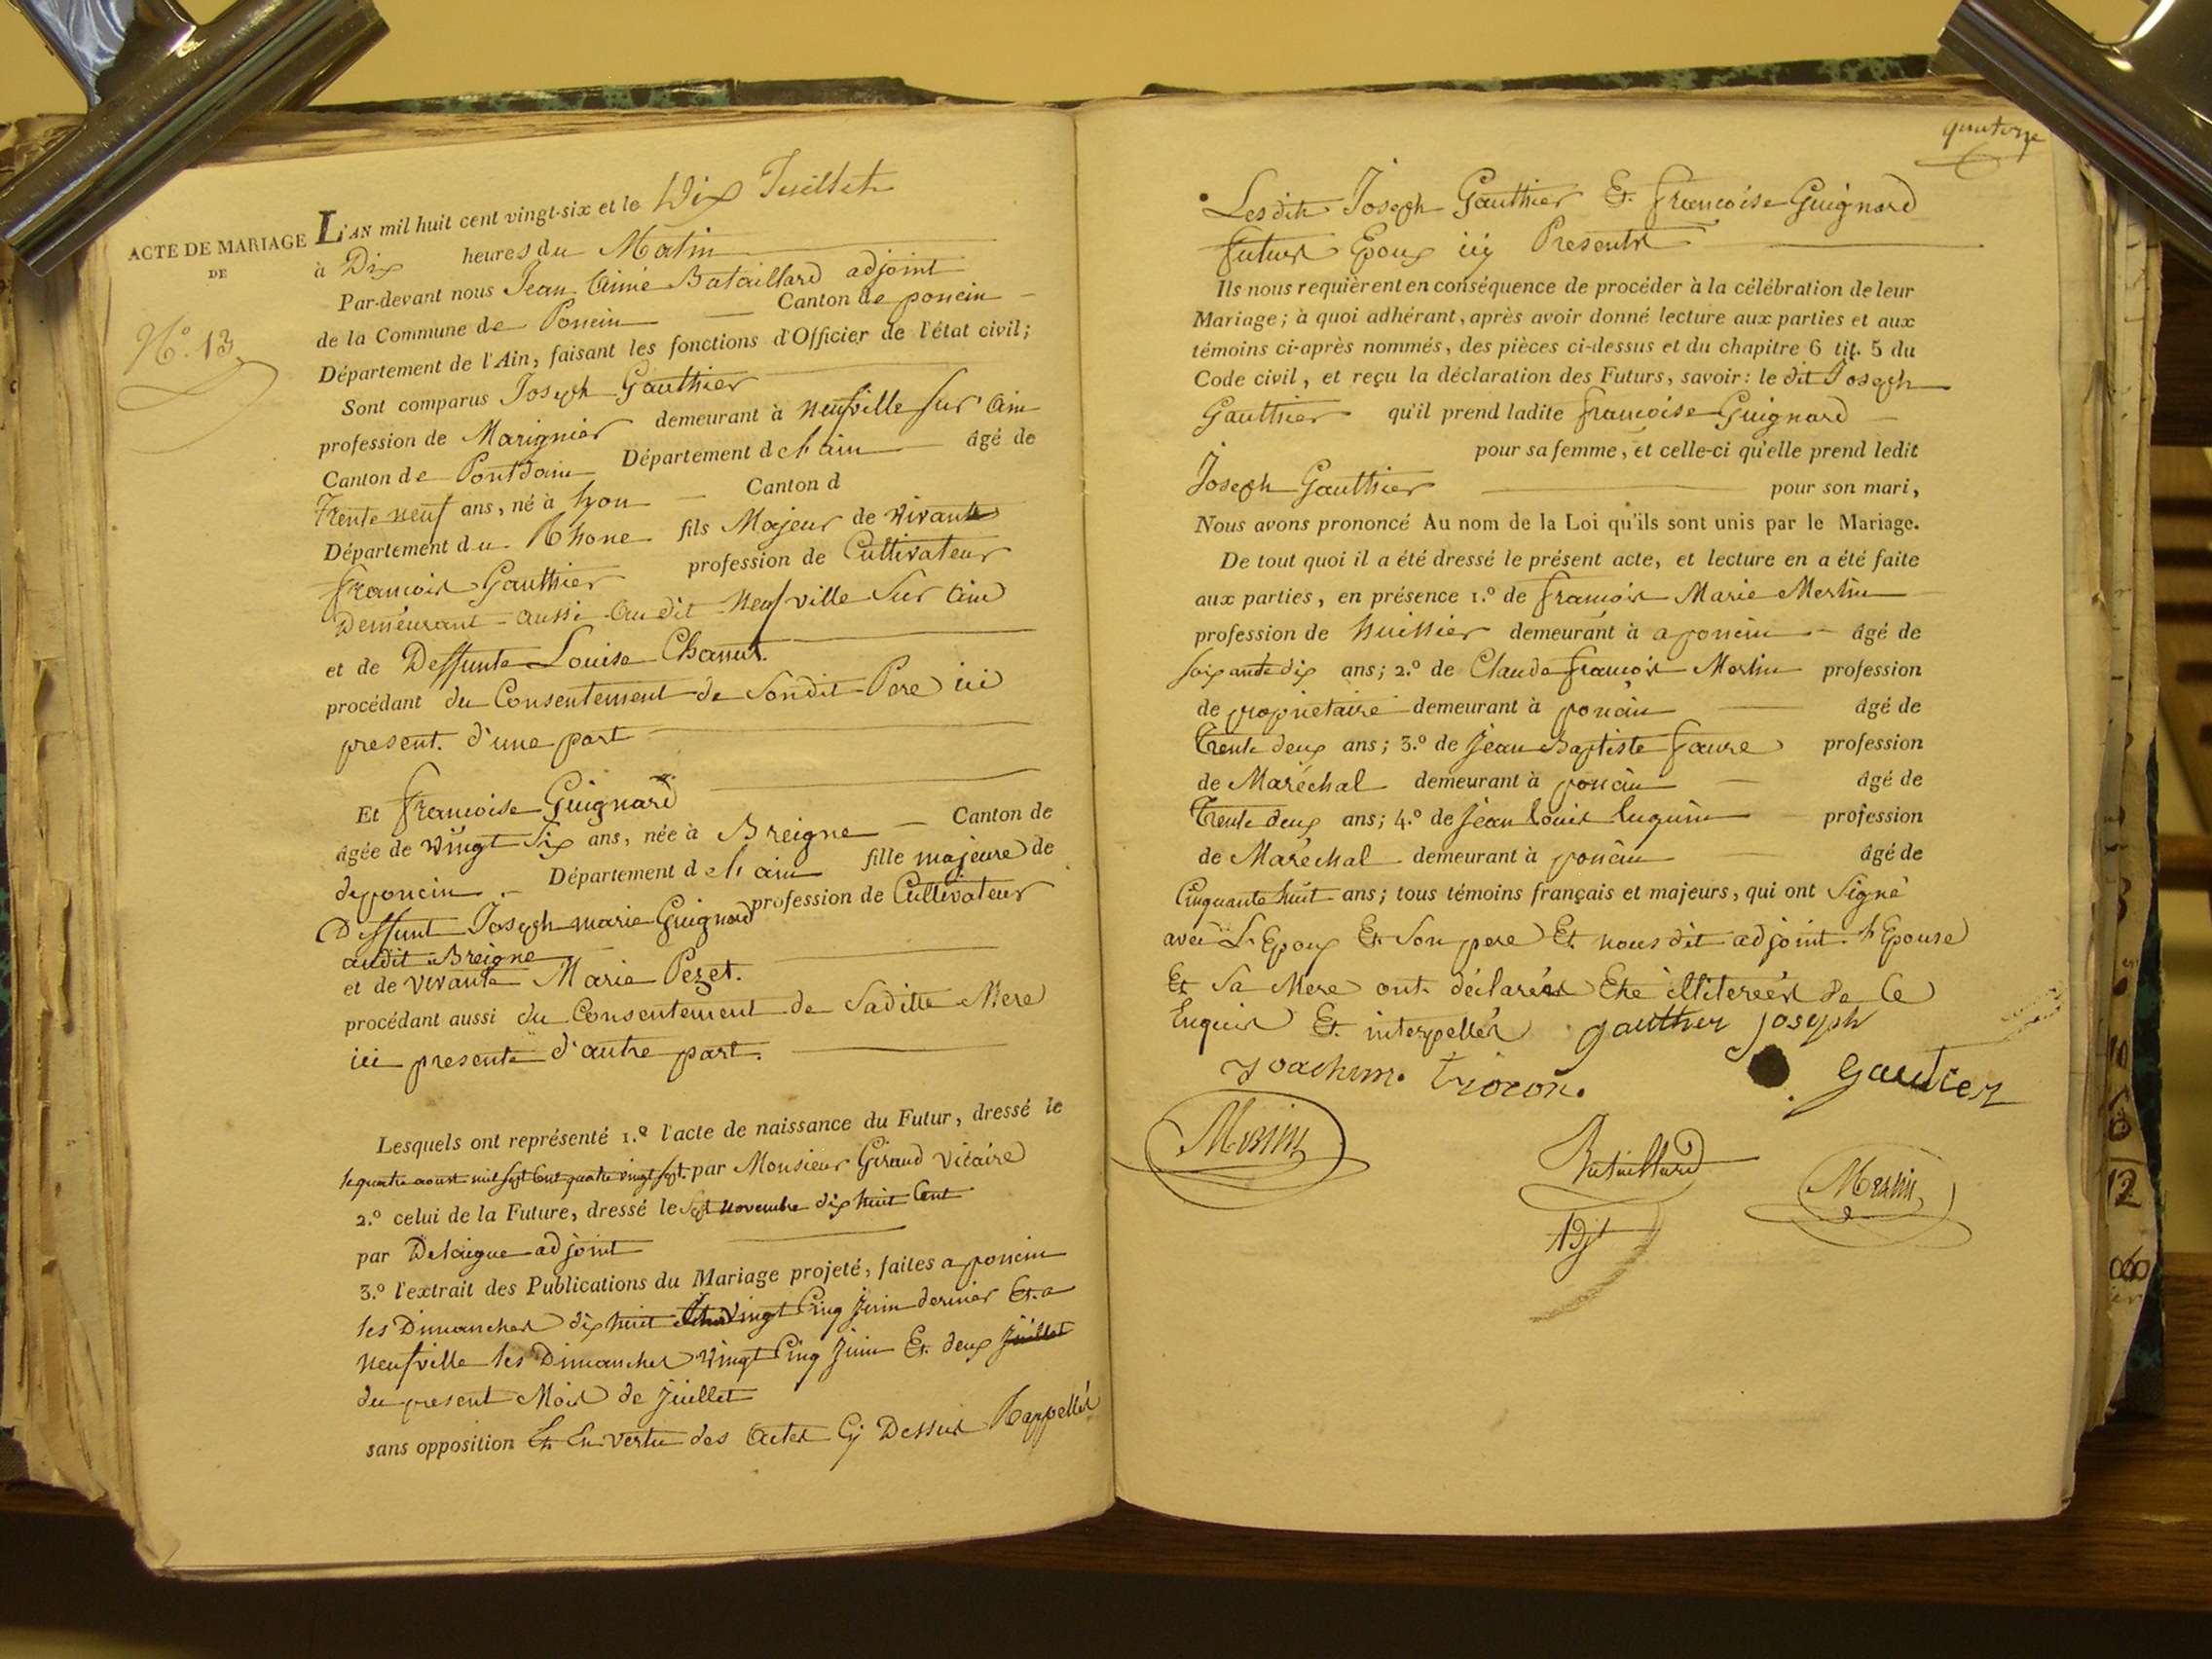 ACTE DE MARIAGE
DE
N.º 13
L'AN mil huit cent vingt-six et le Dix Juillet
à Dix heures du Matin
Par-devant nous Jean Aimé Bataillard adjoint
de la Commune de Poncin Canton de poncin
Département de l'Ain, faisant les fonctions d'Officier de l'état civil;
Sont comparus Joseph Gauthier
profession de Marignier demeurant à Neufville sur ain
Canton de Pontdain Département de l'ain âgé de
Trente neuf ans, né à Lyon Canton d
Département du Rhone fils Majeur de vivant
francois Gauthier profession de Cultivateur
Demeurant aussi audit Neufville Sur ain
et de Deffunte Louise Chanut.
procédant du Consentement de Sondit Pere ici
present. d'une part
Et francoise Guignard
âgée de vingt Six ans, née à Breigne Canton de
de poncin Département de l'ain fille majeure de
Deffunt Joseph marie Guignard profession de Cultivateur
audit Breigne
et de vivante Marie Pezet.
procédant aussi du Consentement de Saditte Mere
ici presente d'autre part.
Lesquels ont représenté 1.º l'acte de naissance du Futur, dressé le
le quatre aoust mil sept Cent quatre vingt sept. par Monsieur Giraud Vicaire
2.º celui de la Future, dressé le Sept novembre dix huit Cent
par Delaigue adjoint
3.º l'extrait des Publications du Mariage projeté, faites a poncin
les Dimanches dix huit vingt Cinq juin dernier Et a
Neufville les Dimanches vingt Cinq Juin Et deux juillet
du present Mois de juillet
sans opposition Et En vertu des actes Cy Dessus Rappellés
quatorze
Lesdits Joseph Gauthier Et francoise Guignard
futurs Epoux icy Presents
Ils nous requièrent en conséquence de procéder à la célébration de leur
Mariage; à quoi adhérant, après avoir donné lecture aux parties et aux
témoins ci-après nommés, des pièces ci-dessus et du chapitre 6 tit. 5 du
Code civil, et reçu la déclaration des Futurs, savoir: le dit Joseph
Gauthier qu'il prend ladite francoise Guignard
pour sa femme, et celle-ci qu'elle prend ledit
Joseph Gauthier pour son mari,
Nous avons prononcé Au nom de la Loi qu'ils sont unis par le Mariage.
De tout quoi il a été dressé le présent acte, et lecture en a été faite
aux parties, en présence 1.º de francois Marie Merlin
profession de huissier demeurant à a poncin âgé de
soixante dix ans; 2.º de Claude francois Merlin profession
de proprietaire demeurant à poncin âgé de
Trente deux ans; 3.º de Jean Baptiste faure profession
de Maréchal demeurant à poncin âgé de
Trente deux ans; 4.º de Jean louis luquin profession
de Maréchal demeurant à poncin âgé de
Cinquante huit ans; tous témoins français et majeurs, qui ont Signé
avec L'Epoux Et Son pere Et nous dit adjoint. L'Epouse
Et Sa Mere ont déclarés Etre illiterées de Ce
Enquis Et interpellés gauthier joseph
gautier
Merlin
Bataillard
Merlin
adjt